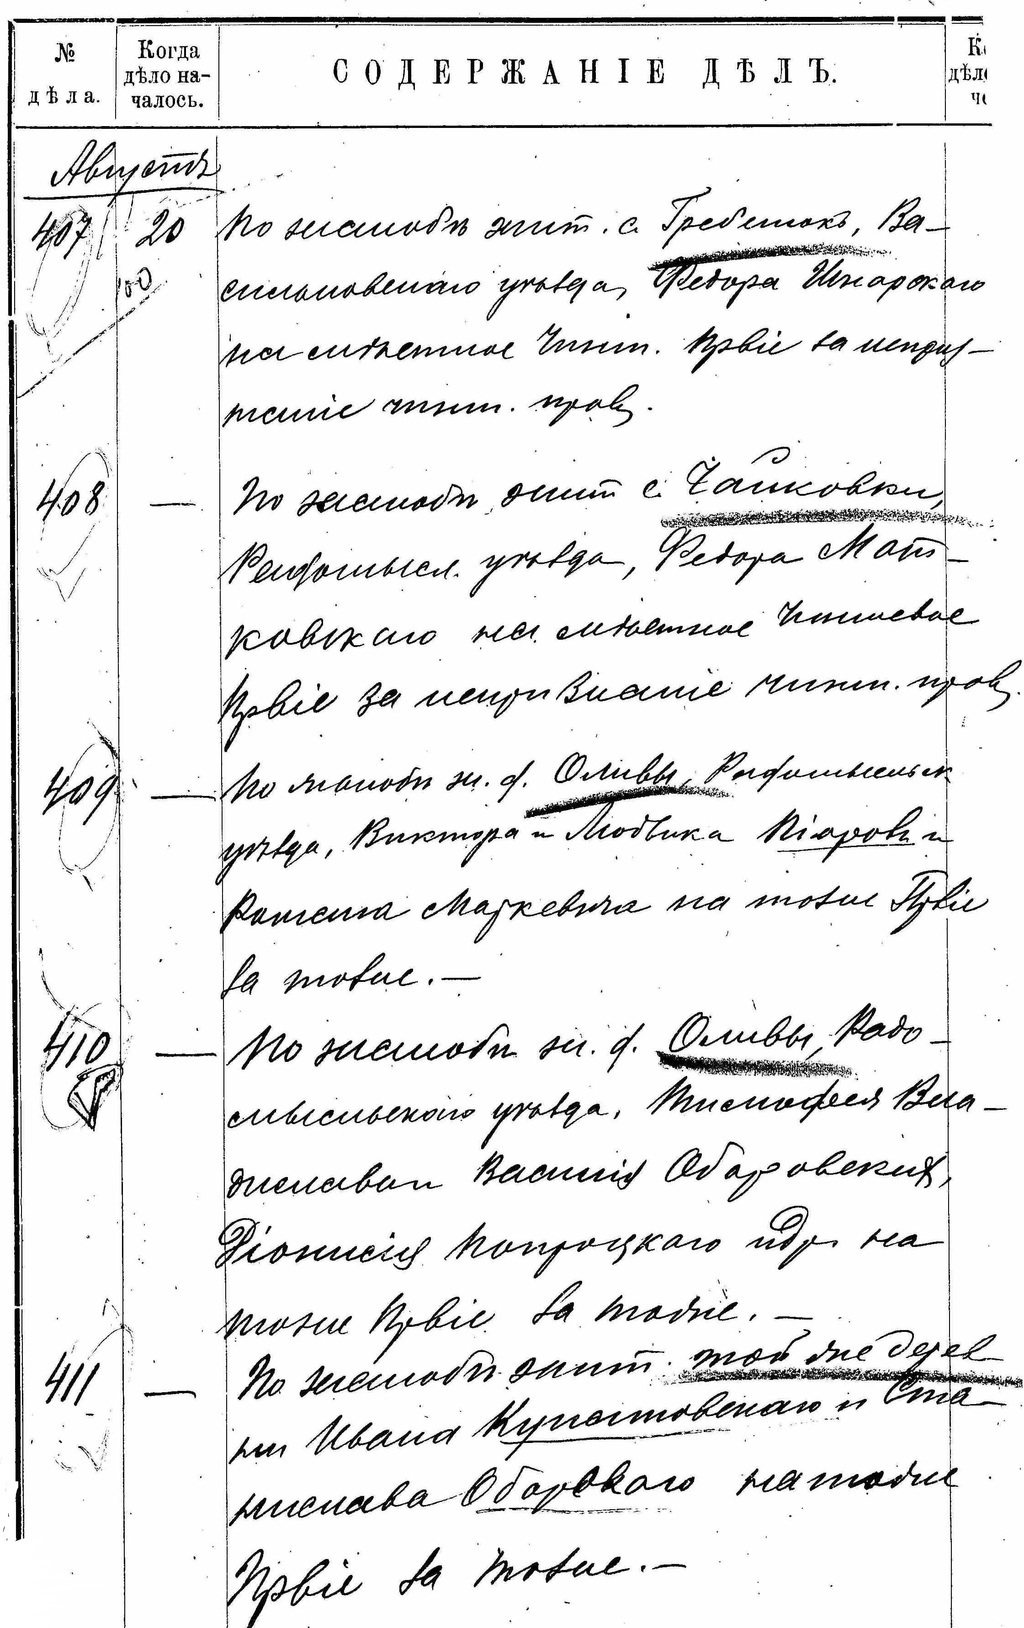 № дѣла.
Когда дѣло на-
чалось.
СОДЕРЖАНІЕ ДѢЛЪ.
Августъ
407 20 По жалобѣ жит. с. Гребенокъ, Ва-
сильковскаго уѣзда, Федора
на мѣстное Чинш. Пр-віе за
чинш. прав.
408 — По жалобѣ жит с. Чайковки,
Радомысл. уѣзда, Федора Мат-
ковскаго на мѣстное Чиншевое
Пр-віе за непризнаніе чинш. прав.
409 — По жалобѣ ж. д. Оливы, Радомысльск
уѣзда, Виктора и Людвика Піоровъ и
Романа Маркевича на тоже Пр-віе
за тоже.—
410 — По жалобѣ ж. д. Оливы, Радо-
мысльскаго уѣзда, Тимофея Вла-
дислава и Василія Оборовскихъ,
Діонисія Попроцкаго и др. на
тоже Пр-віе за тоже.—
411 — По жалобѣ жит. той же дерев
ни Ивана и Ста-
нислава Оборскаго на тоже
Пр-віе за тоже.—